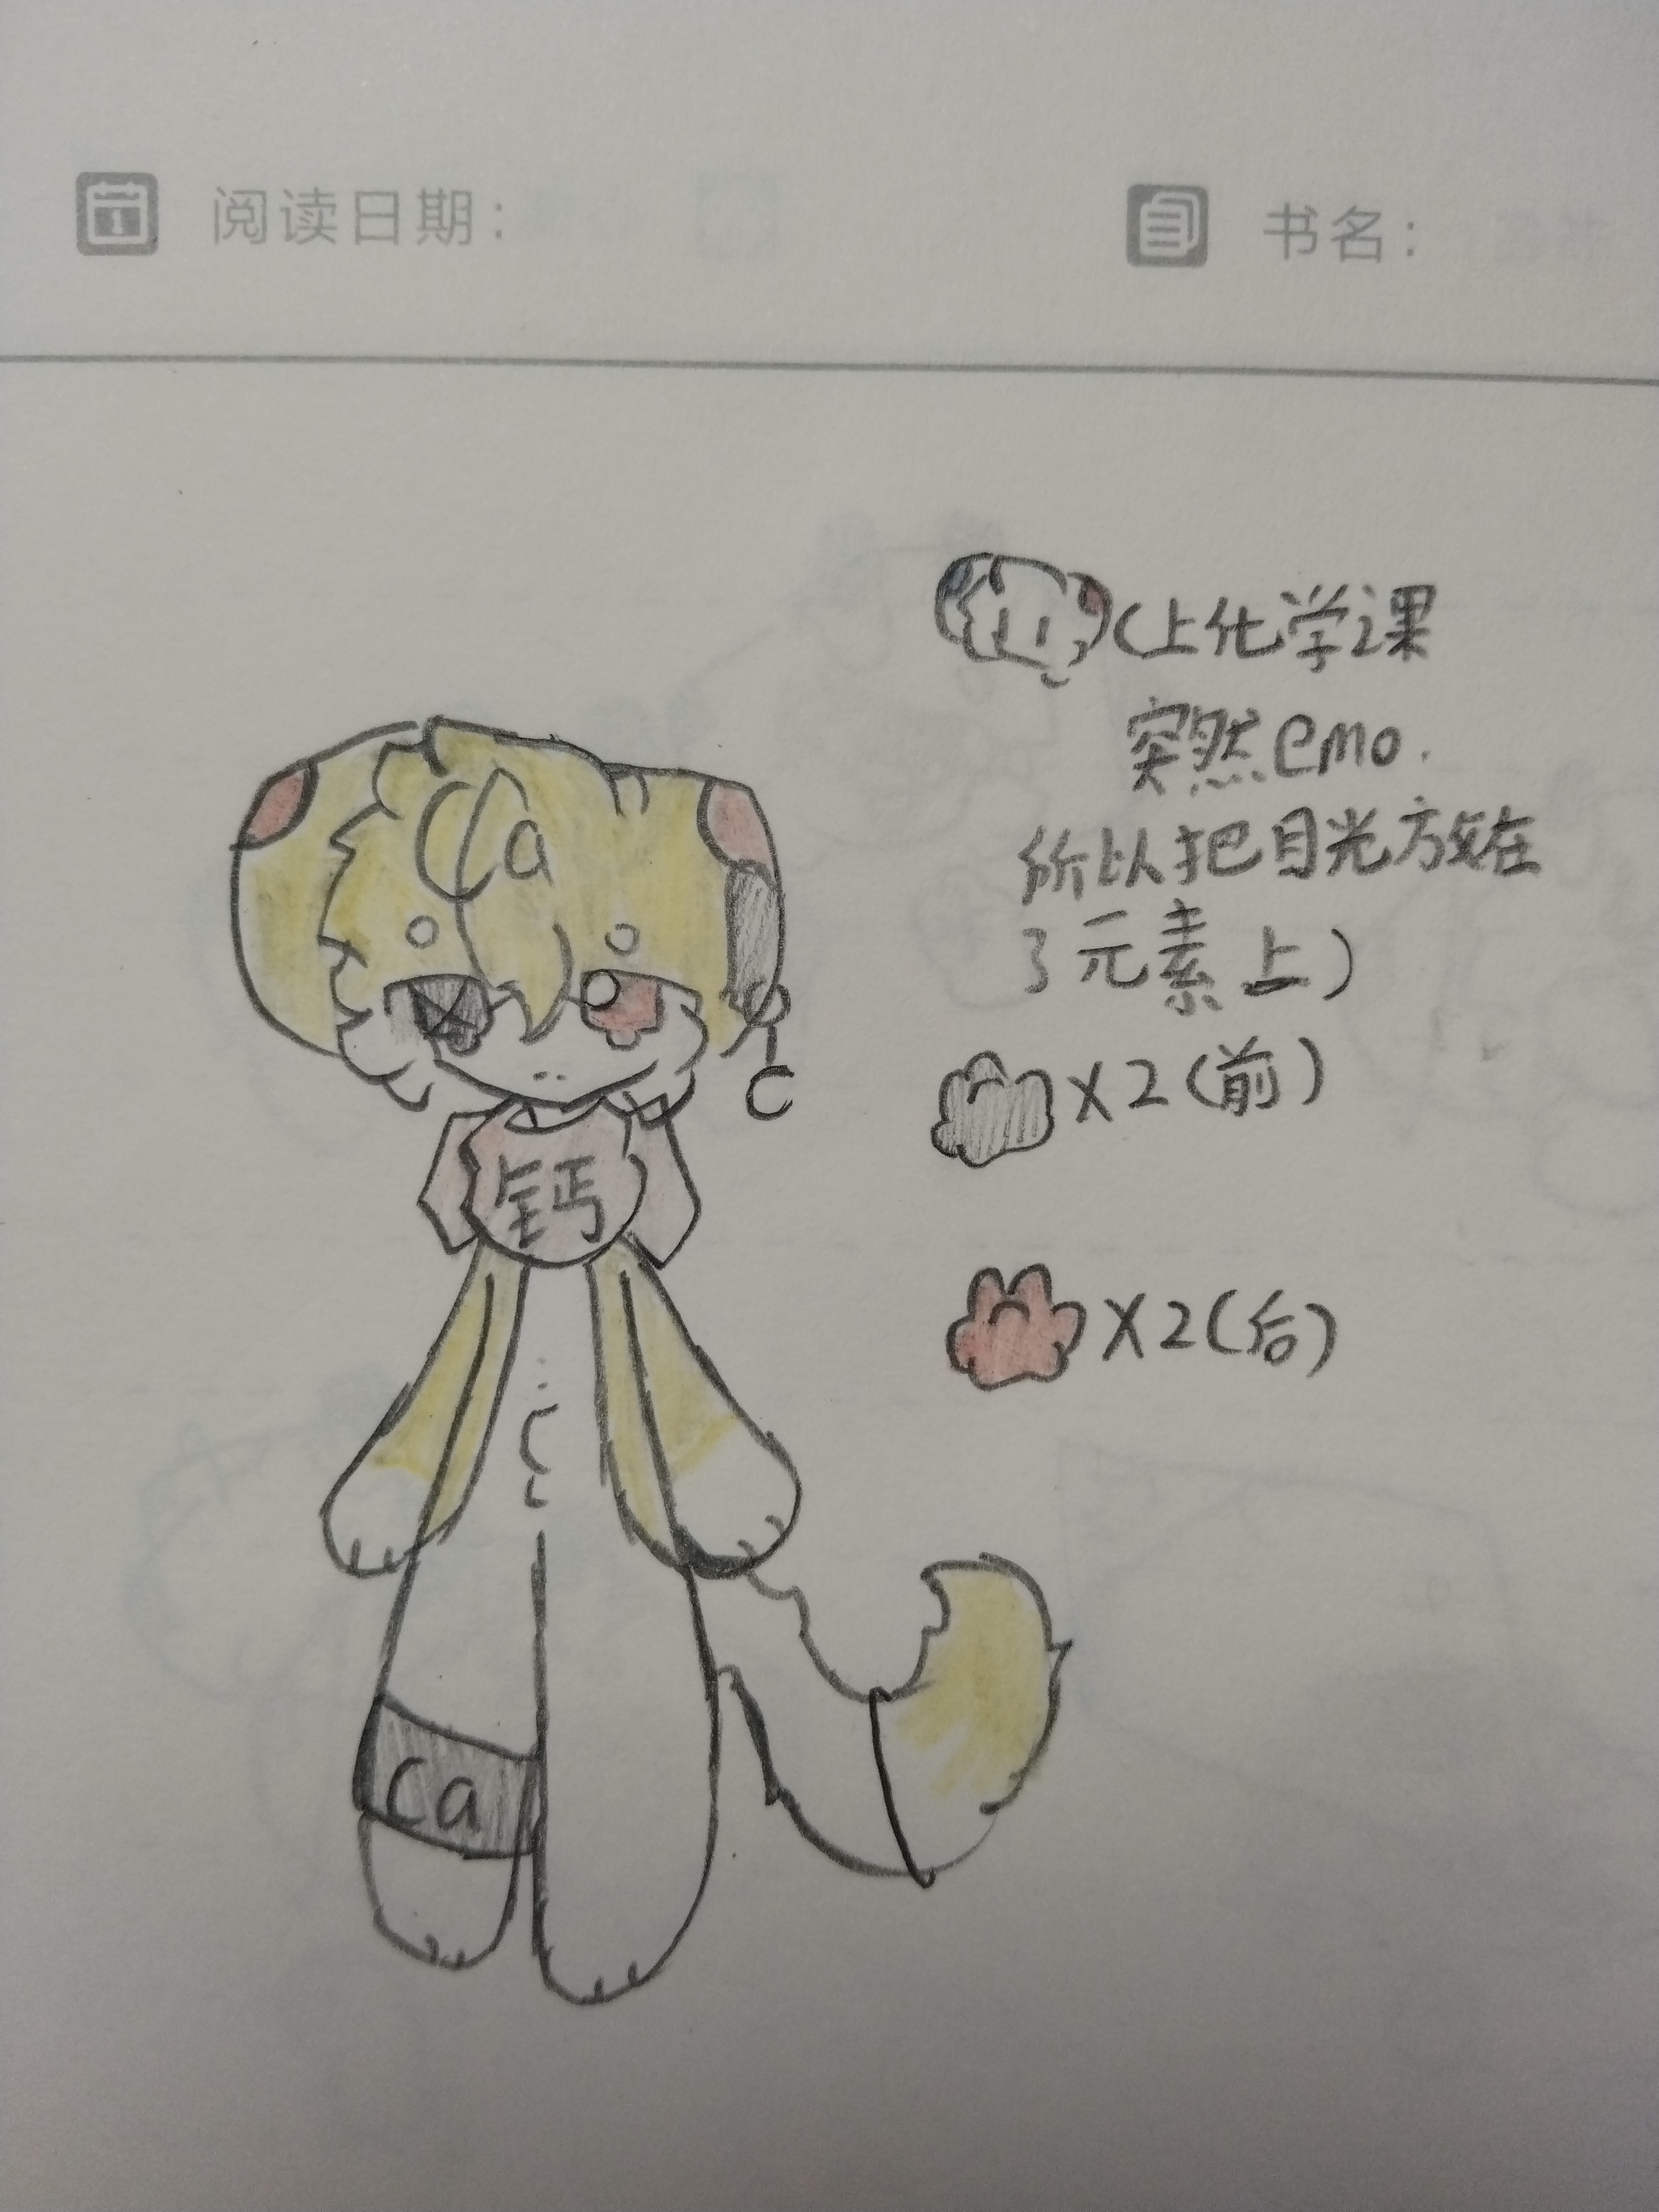 阅读日期：
书名：
(上化学课
突然emo.
所以把目光放在
了元素上)
Ca
X2(前)
C
钙
X2(后)
Ca